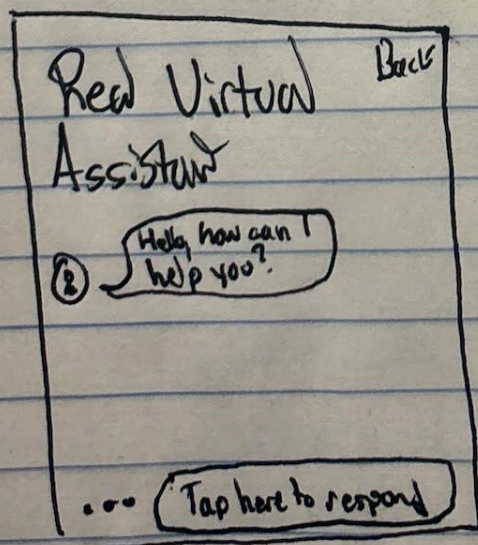 Real Virtual
Assistant
Back
Hello, how can I
help you?
Tap here to respond